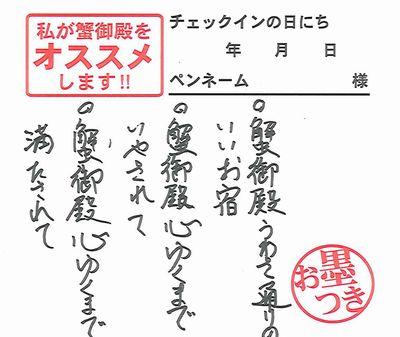 私が蟹御殿を
オススメ
します!!
チェックインの日にち
年 月 日
ペンネーム 様
○蟹御殿うわさ通りの
いいお宿
○蟹御殿心ゆくまで
いやされて
○蟹御殿心ゆくまで
満たされて
お墨つき